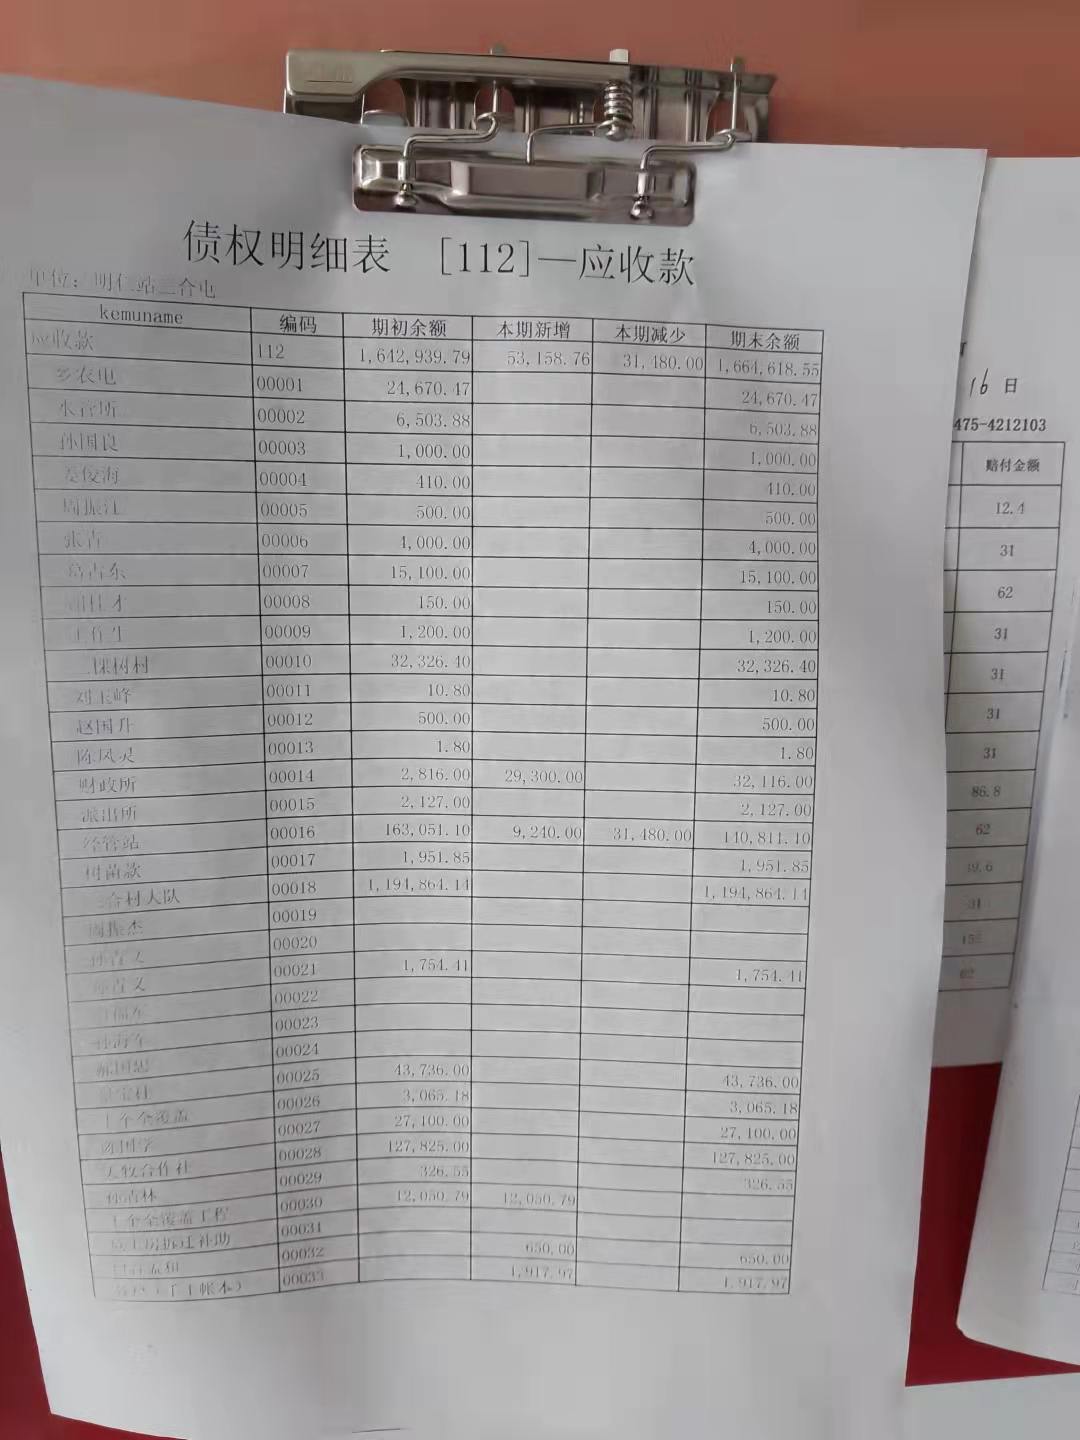 债权明细表 [112]—应收款
单位：明仁站三合屯
kemuname 编码 期初余额 本期新增 本期减少 期末余额
应收款 112 1,642,939.79 53,158.76 31,480.00 1,664,618.55
乡农电 00001 24,670.47 24,670.47
水管所 00002 6,503.88 6,503.88
孙国良 00003 1,000.00 1,000.00
姜俊海 00004 410.00 410.00
周振江 00005 500.00 500.00
张吉 00006 4,000.00 4,000.00
葛占东 00007 15,100.00 15,100.00
00008 150.00 150.00
00009 1,200.00 1,200.00
二棵树村 00010 32,326.40 32,326.40
刘玉峰 00011 10.80 10.80
赵国升 00012 500.00 500.00
陈风灵 00013 1.80 1.80
财政所 00014 2,816.00 29,300.00 32,116.00
派出所 00015 2,127.00 2,127.00
经管站 00016 163,051.10 9,240.00 31,480.00 140,811.10
树苗款 00017 1,951.85 1,951.85
三合村大队 00018 1,194,864.14 1,194,864.14
周振杰 00019
00020
00021 1,754.41 1,754.41
00022
00023
00024
00025 43,736.00 43,736.00
十个全覆盖 00026 3,065.18 3,065.18
00027 27,100.00 27,100.00
农牧合作社 00028 127,825.00 127,825.00
00029 326.55 326.55
十个全覆盖工程 00030 12,050.79 12,050.79
房拆迁补助 00031
00032 650.00 650.00
00033 1,917.97 1,917.97
16日
475-4212103
赔付金额
12.4
31
62
31
31
31
31
86.8
62
31
62